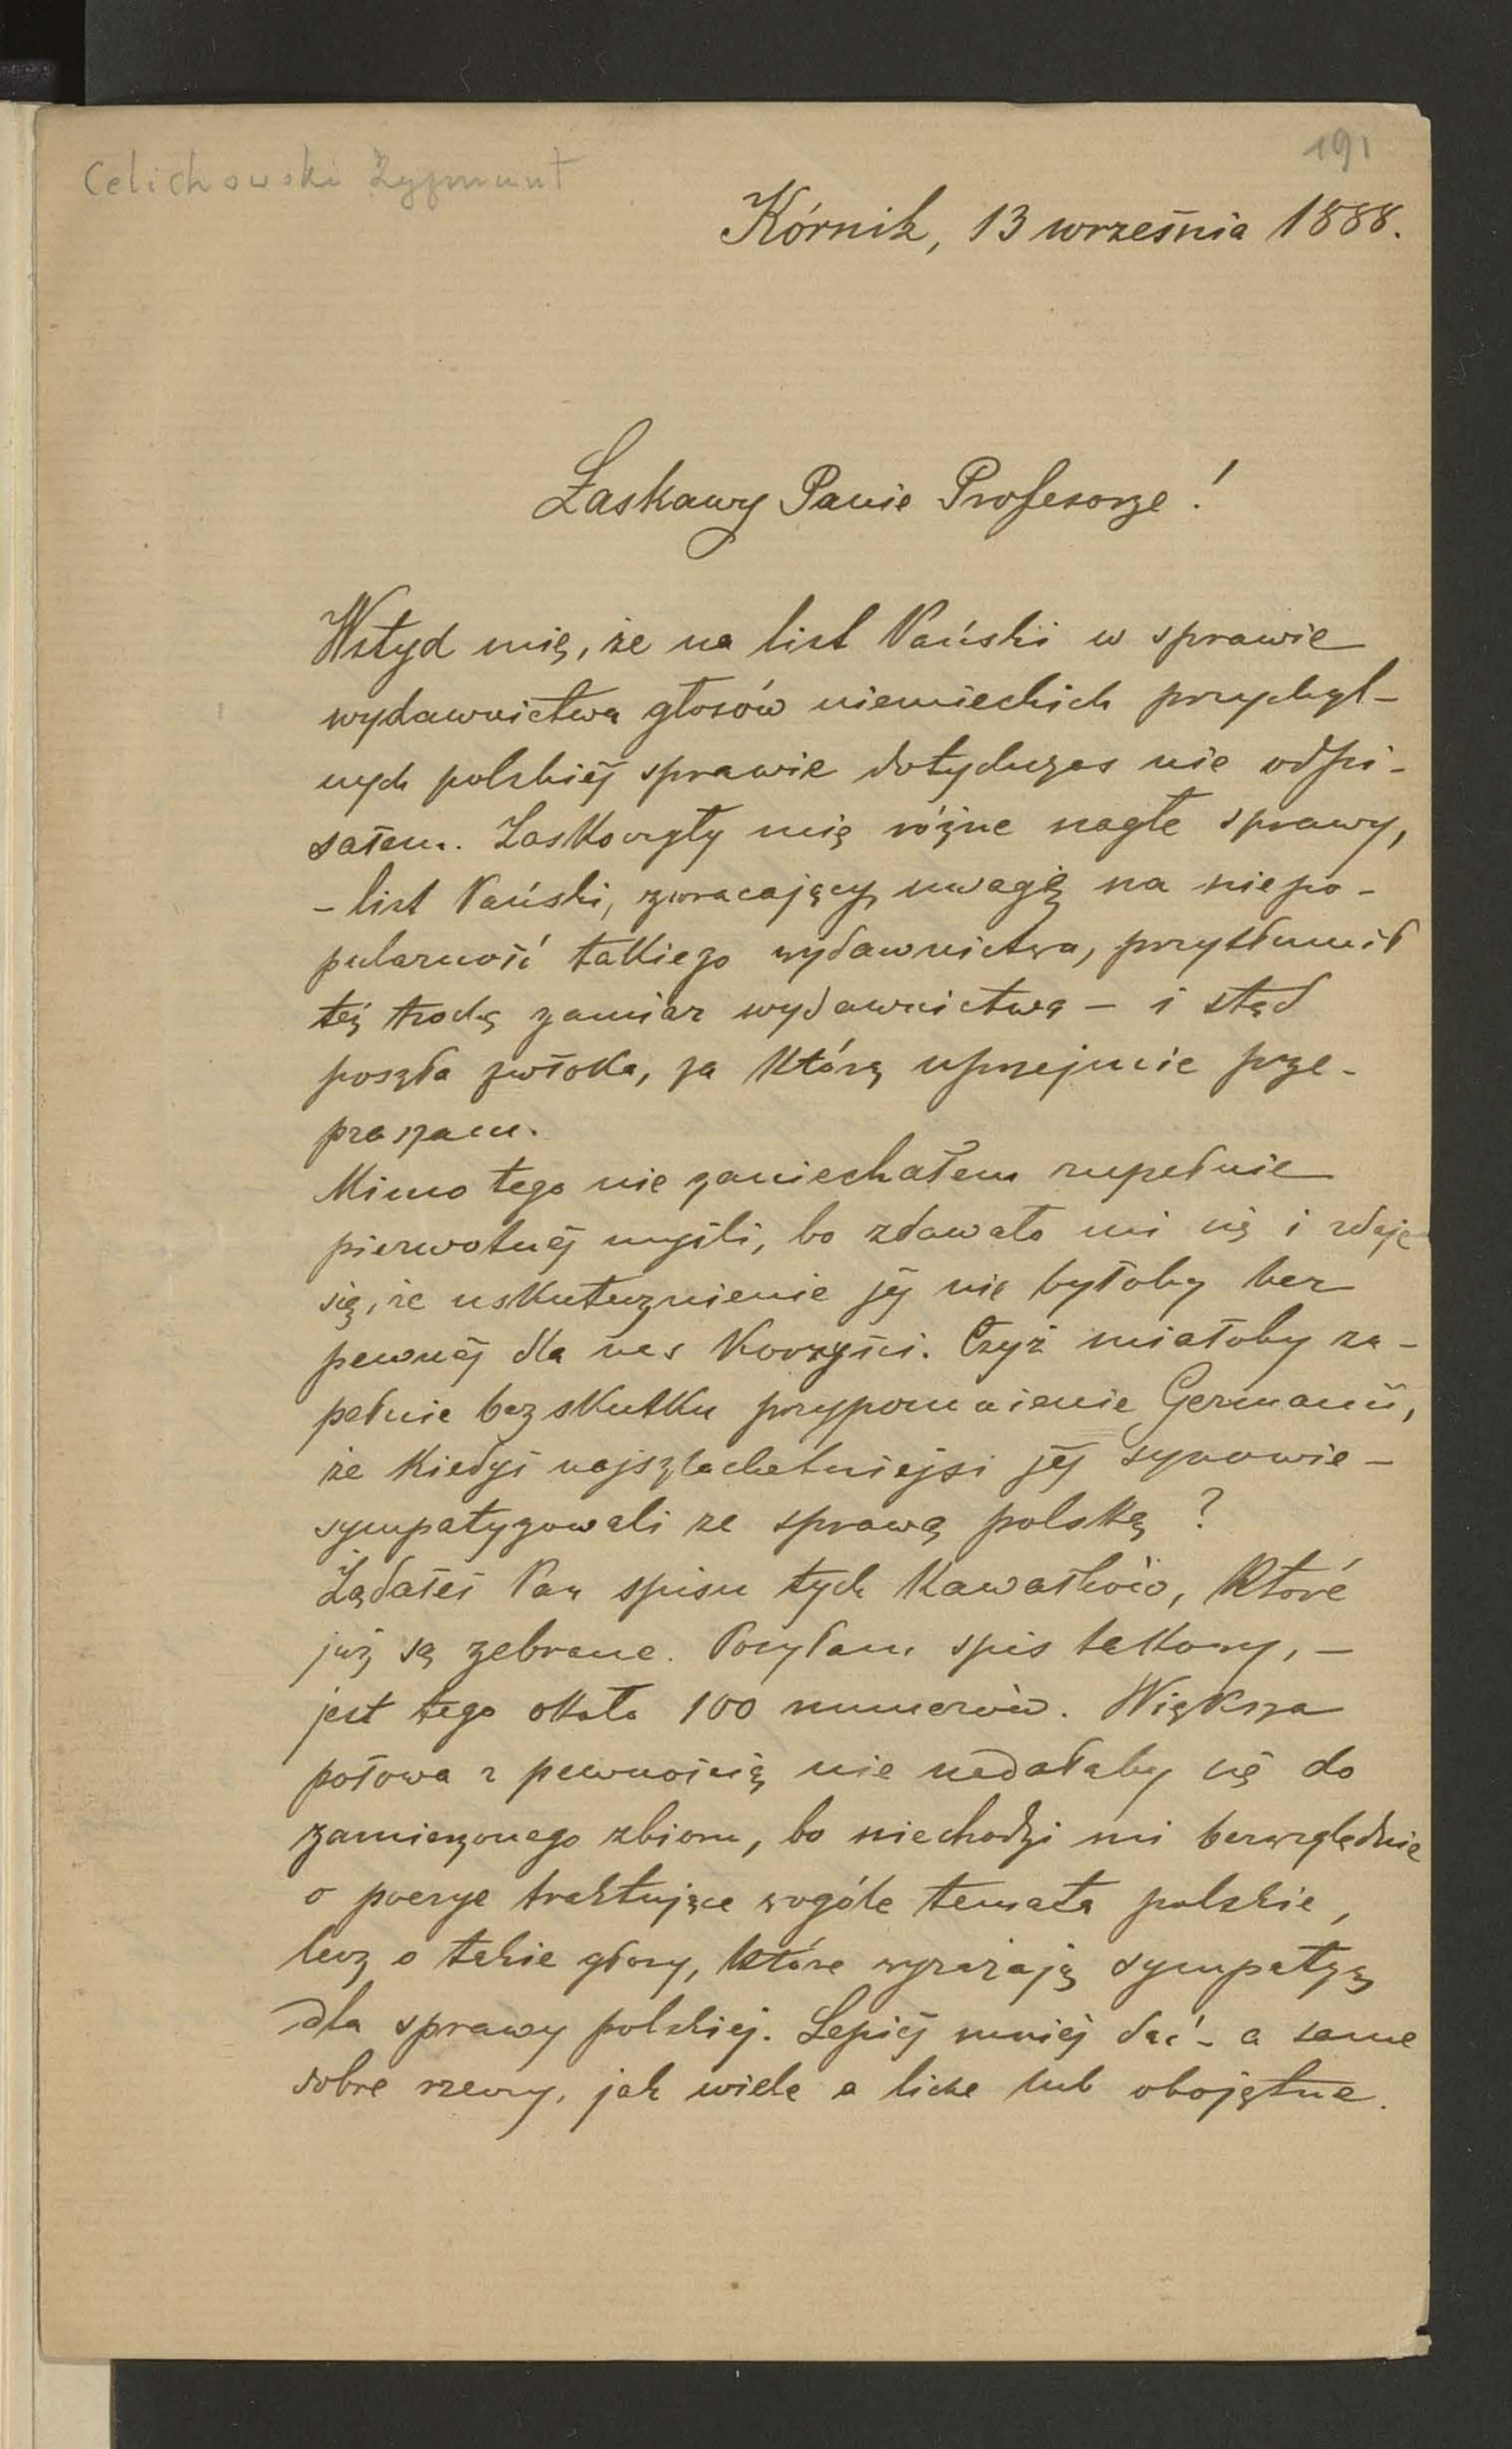 Celichowski Zygmunt
191
Kórnik, 13 września 1888.
Łaskawy Panie Profesorze!
Wstyd mię, że na list Pański w sprawie
wydawnictwa głosów niemieckich przychyl-
nych polskiéj sprawie dotychczas nie odpi-
sałem. Zaskoczyły mię różne nagłe sprawy,
- list Pański, zwracający uwagę na niepo-
pularność takiego wydawnictwa, przytłumił
też trochę zamiar wydawnictwa – i stąd
poszła zwłoka, za którą uprzejmie prze-
praszam.
Mimo tego nie zaniechałem zupełnie
pierwotnéj myśli, bo zdawało mi się i zdaje
się, że uskutecznienie jéj nie byłoby bez
pewnéj dla nas korzyści. Czyż miałoby zu-
pełnie bez skutku przypomnienie Germanii,
że kiedyś najszlachetniejsi jéj synowie –
sympatyzowali ze sprawą polską?
Żądałeś Pan spisu tych kawałków, które
już są zebrane. Posyłam spis takowy, –
jest tego około 100 numerów. Większa
połowa z pewnością nie nadałaby się do
zamierzonego zbioru, bo niechodzi mi bezwzględnie
o poezye traktujące wogóle temata polskie,
lecz o takie głosy, które wyrażają sympatyą
dla sprawy polskiej. Lepiéj mniéj dać – a same
dobre rzeczy, jak wiele a liche lub obojętne.